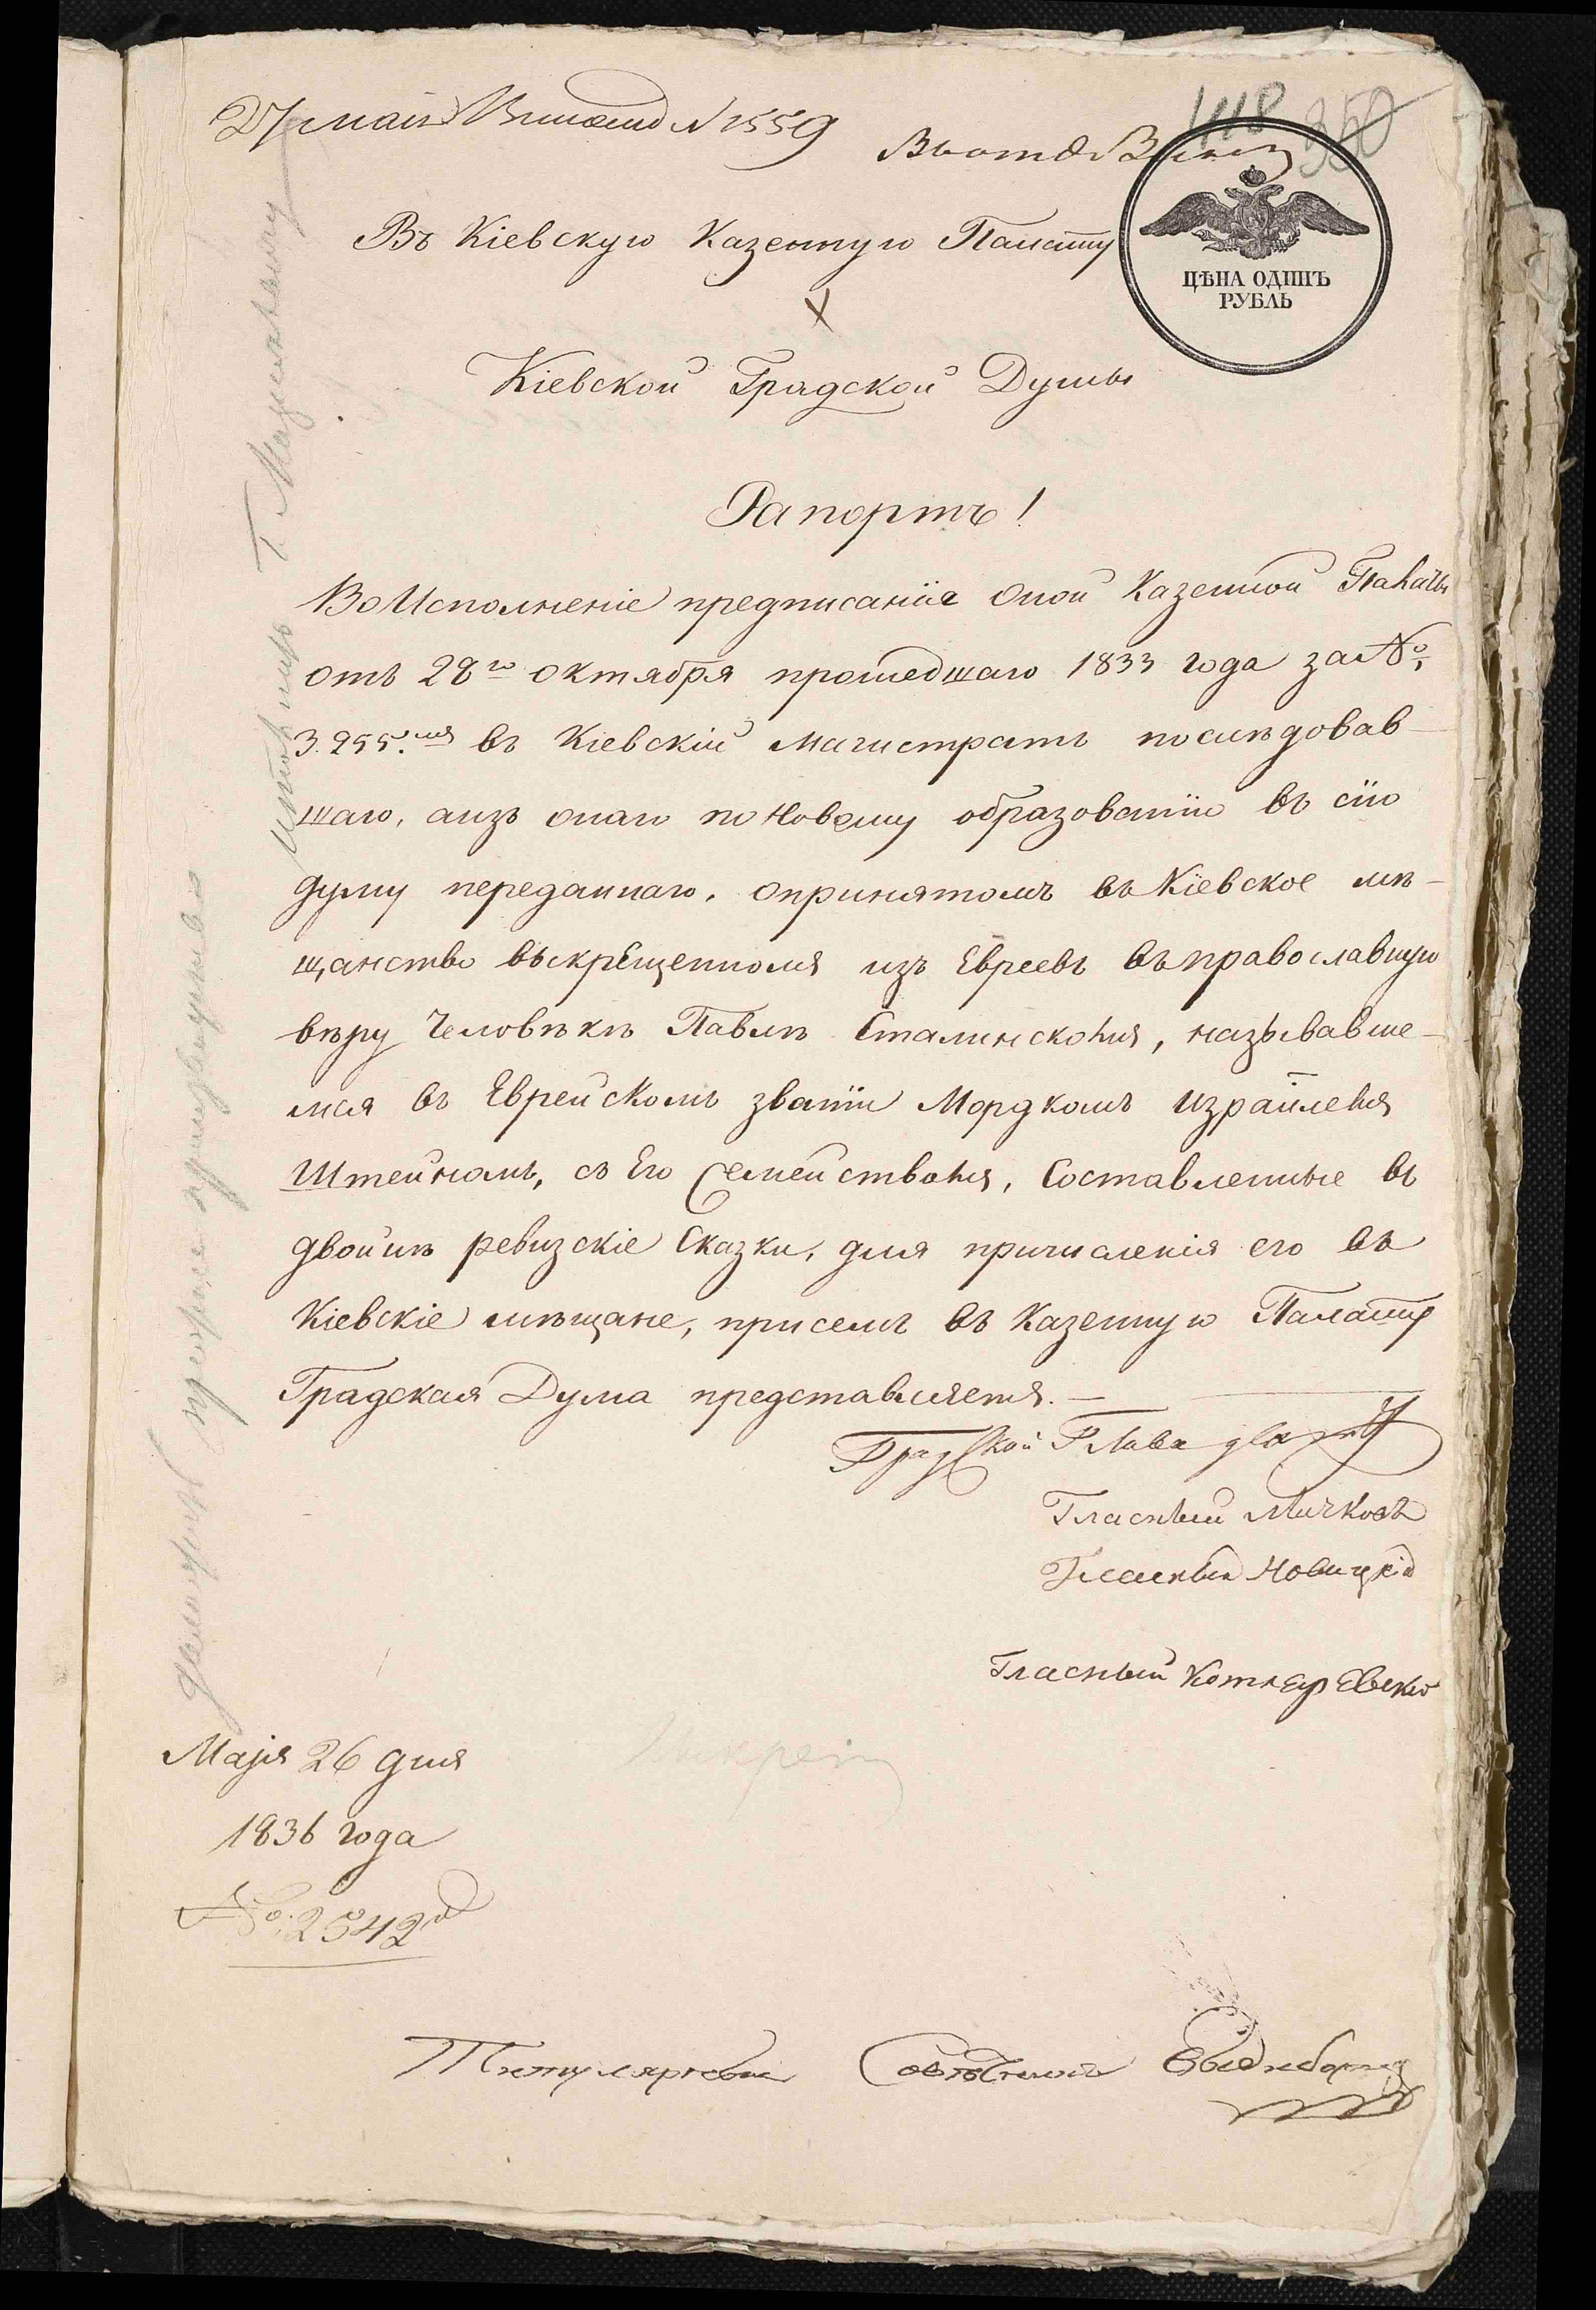 27 маія № 1559
1418 350
Въ Кіевскую Казенную Палату
ЦѢНА ОДИНЪ
РУБЛЬ
Кіевской Градской Думы
Рапортъ!
Во Исполненіе предписанія оной Казенной Палаты
отъ 28го октября прошедшаго 1833 года за №
3.255.мъ въ Кіевскій магистратъ последовав-
шаго, аизъ онаго по Новому образованію въ сію
думу переданнаго, опринятомъ въ Кіевское мѣ-
щанство выкрещенномъ изъ Евреевъ въ православную
вѣру Человѣкѣ Павлѣ Сталинскомъ, называвше-
мся въ Еврейскомъ званіи Мордкомъ Израйлемъ
Штейномъ, съ Его Семействомъ, Составленные въ
двойнѣ ревизскіе Сказки, для причисленія его въ
Кіевскіе мѣщане, присемъ въ Казенную Палату
Градская Дума представляетъ. —
Градской Глава
Гласный Мичковъ
Гласный Новицкій
Гласный Котляревский
Маія 26 дня
1836 года
№ 2542й
Титулярный Советникъ